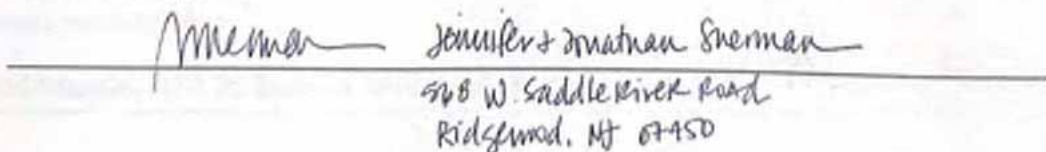 Jennifer + Jonathan Sherman
568 W. Saddle River Road
Ridgewood, NJ 07450